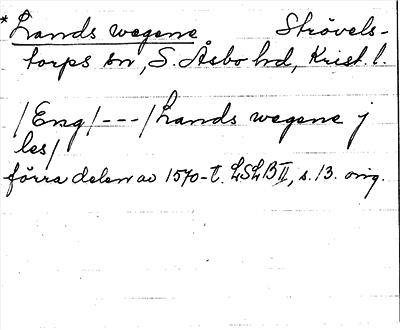 *Lands wegene Strövels-
torps sn, S. Åsbo hd, Krist. l.
/Eng/---/Lands wegene j
les/
förra delen av 1570-t. LSLB II, s. 13. orig.